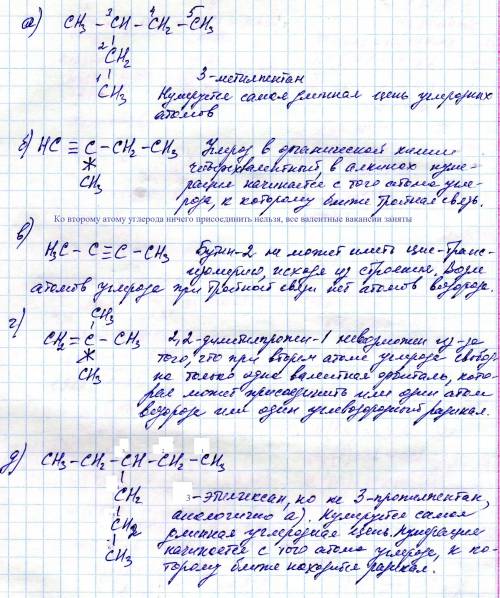 а) CH3 – CH – CH2 – CH3
3 4 5
2 CH2
1 CH3
3-метилпентан
Нумеруется самая длинная цепь углеродных
атомов
б) HC ≡ C – CH2 – CH3
CH3
Углерод в органической химии
четырехвалентный, в алкинах нуме-
рация начинается с того атома угле-
рода, к которому ближе тройная связь.
Ко второму атому углерода ничего присоединить нельзя, все валентные вакансии заняты
в) H3C – C ≡ C – CH3
Бутин-2 не может иметь цис-транс-
изомерию, исходя из строения. Возле
атомов углерода при тройной связи нет атомов водорода.
CH3
г) CH2 = C – CH3
CH3
2,2-диметилпропен-1 невозможен из-за
того, что при втором атоме углерода свобод-
на только одна валентная орбиталь, кото-
рая может присоединить или один атом
водорода или один углеводородный радикал.
д) CH3 – CH2 – CH – CH2 – CH3
CH2
CH2
CH3
3 -этилгексан, но не 3-пропилпентан,
аналогично а). Нумеруется самая
длинная углеродная цепь. Нумерация
начинается с того атома углерода, к ко-
торому ближе находится радикал.